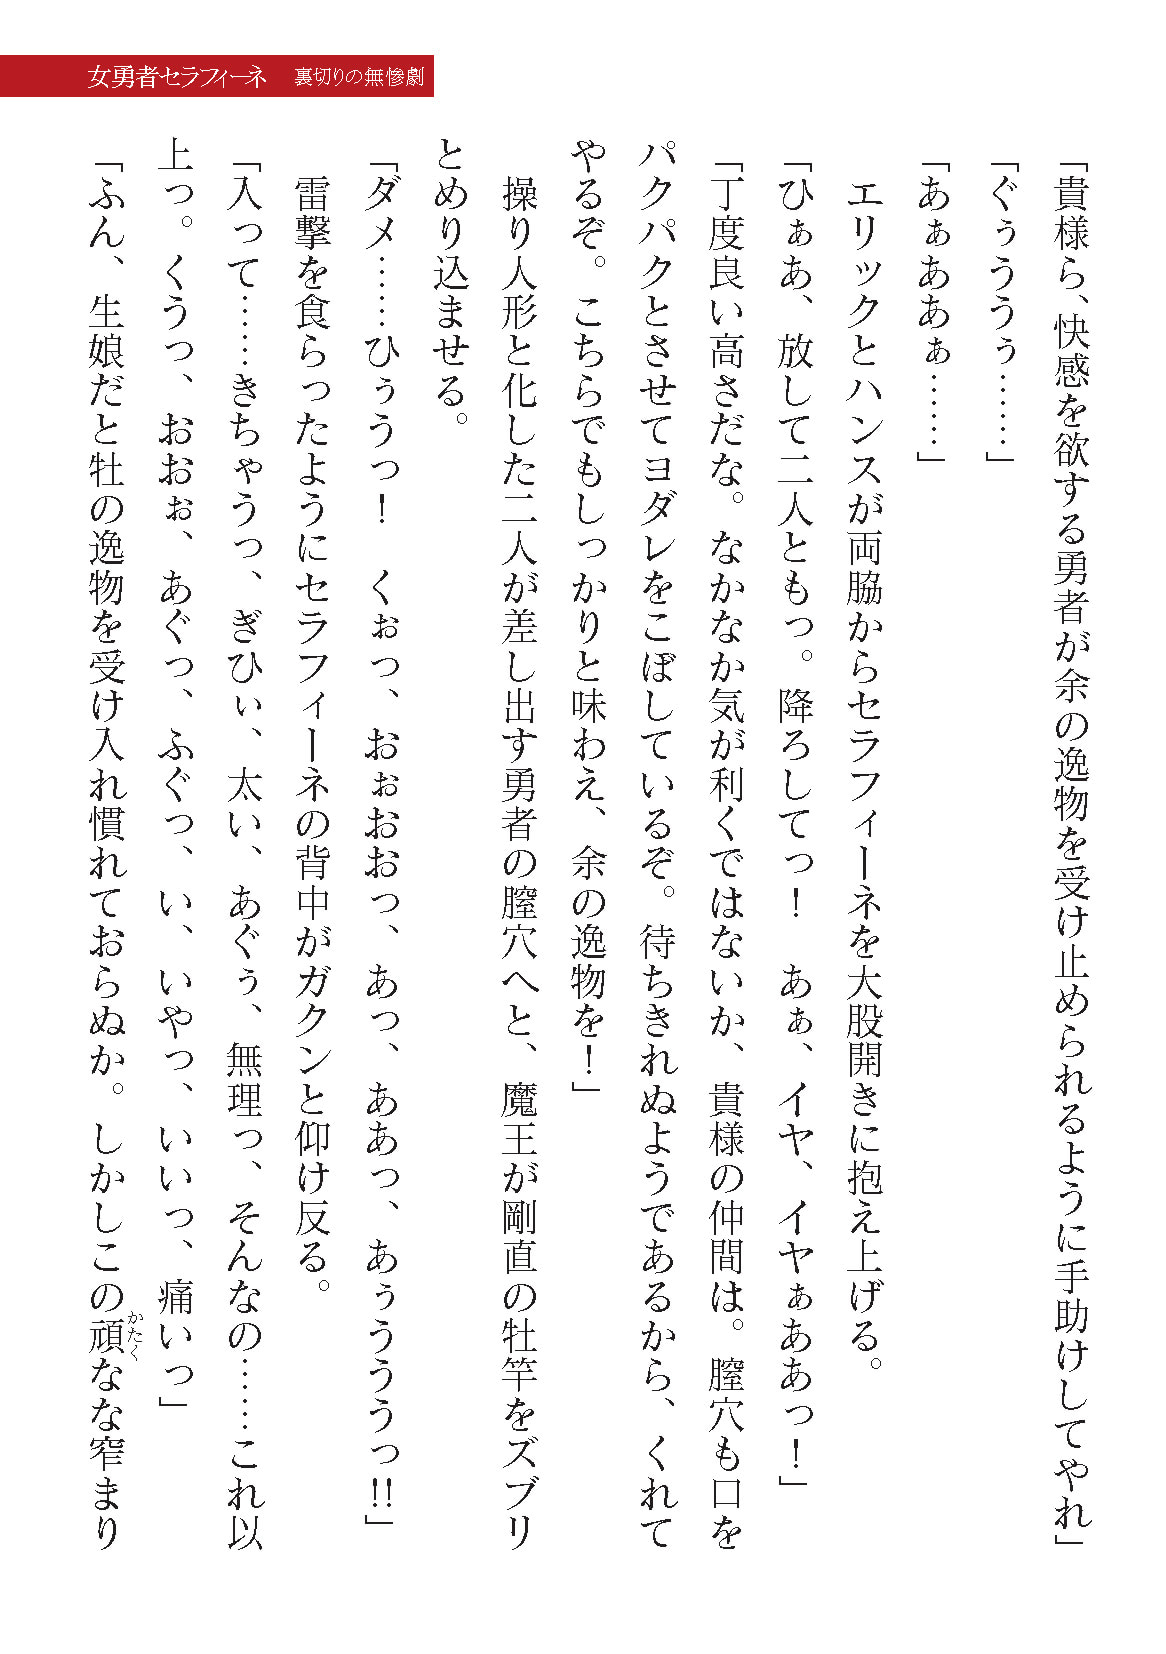 女勇者セラフィーネ　裏切りの無惨劇
「貴様ら、快感を欲する勇者が余の逸物を受け止められるように手助けしてやれ」
「ぐぅううぅ……」
「あぁああぁ……」
　エリックとハンスが両脇からセラフィーネを大股開きに抱え上げる。
「ひぁあ、放して二人ともっ。降ろしてっ！　あぁ、イヤ、イヤぁああっ！」
「丁度良い高さだな。なかなか気が利くではないか、貴様の仲間は。膣穴も口を
パクパクとさせてヨダレをこぼしているぞ。待ちきれぬようであるから、くれて
やるぞ。こちらでもしっかりと味わえ、余の逸物を！」
　操り人形と化した二人が差し出す勇者の膣穴へと、魔王が剛直の牡竿をズブリ
とめり込ませる。
「ダメ……ひぅうっ！　くぉっ、おぉおおっ、あっ、ああっ、あぅうううっ!!」
　雷撃を食らったようにセラフィーネの背中がガクンと仰け反る。
「入って……きちゃうっ、ぎひぃ、太い、あぐぅ、無理っ、そんなの……これ以
上っ。くうっ、おおぉ、あぐっ、ふぐっ、い、いやっ、いいっ、痛いっ」
「ふん、生娘だと牡の逸物を受け入れ慣れておらぬか。しかしこの頑なな窄まり
かたく